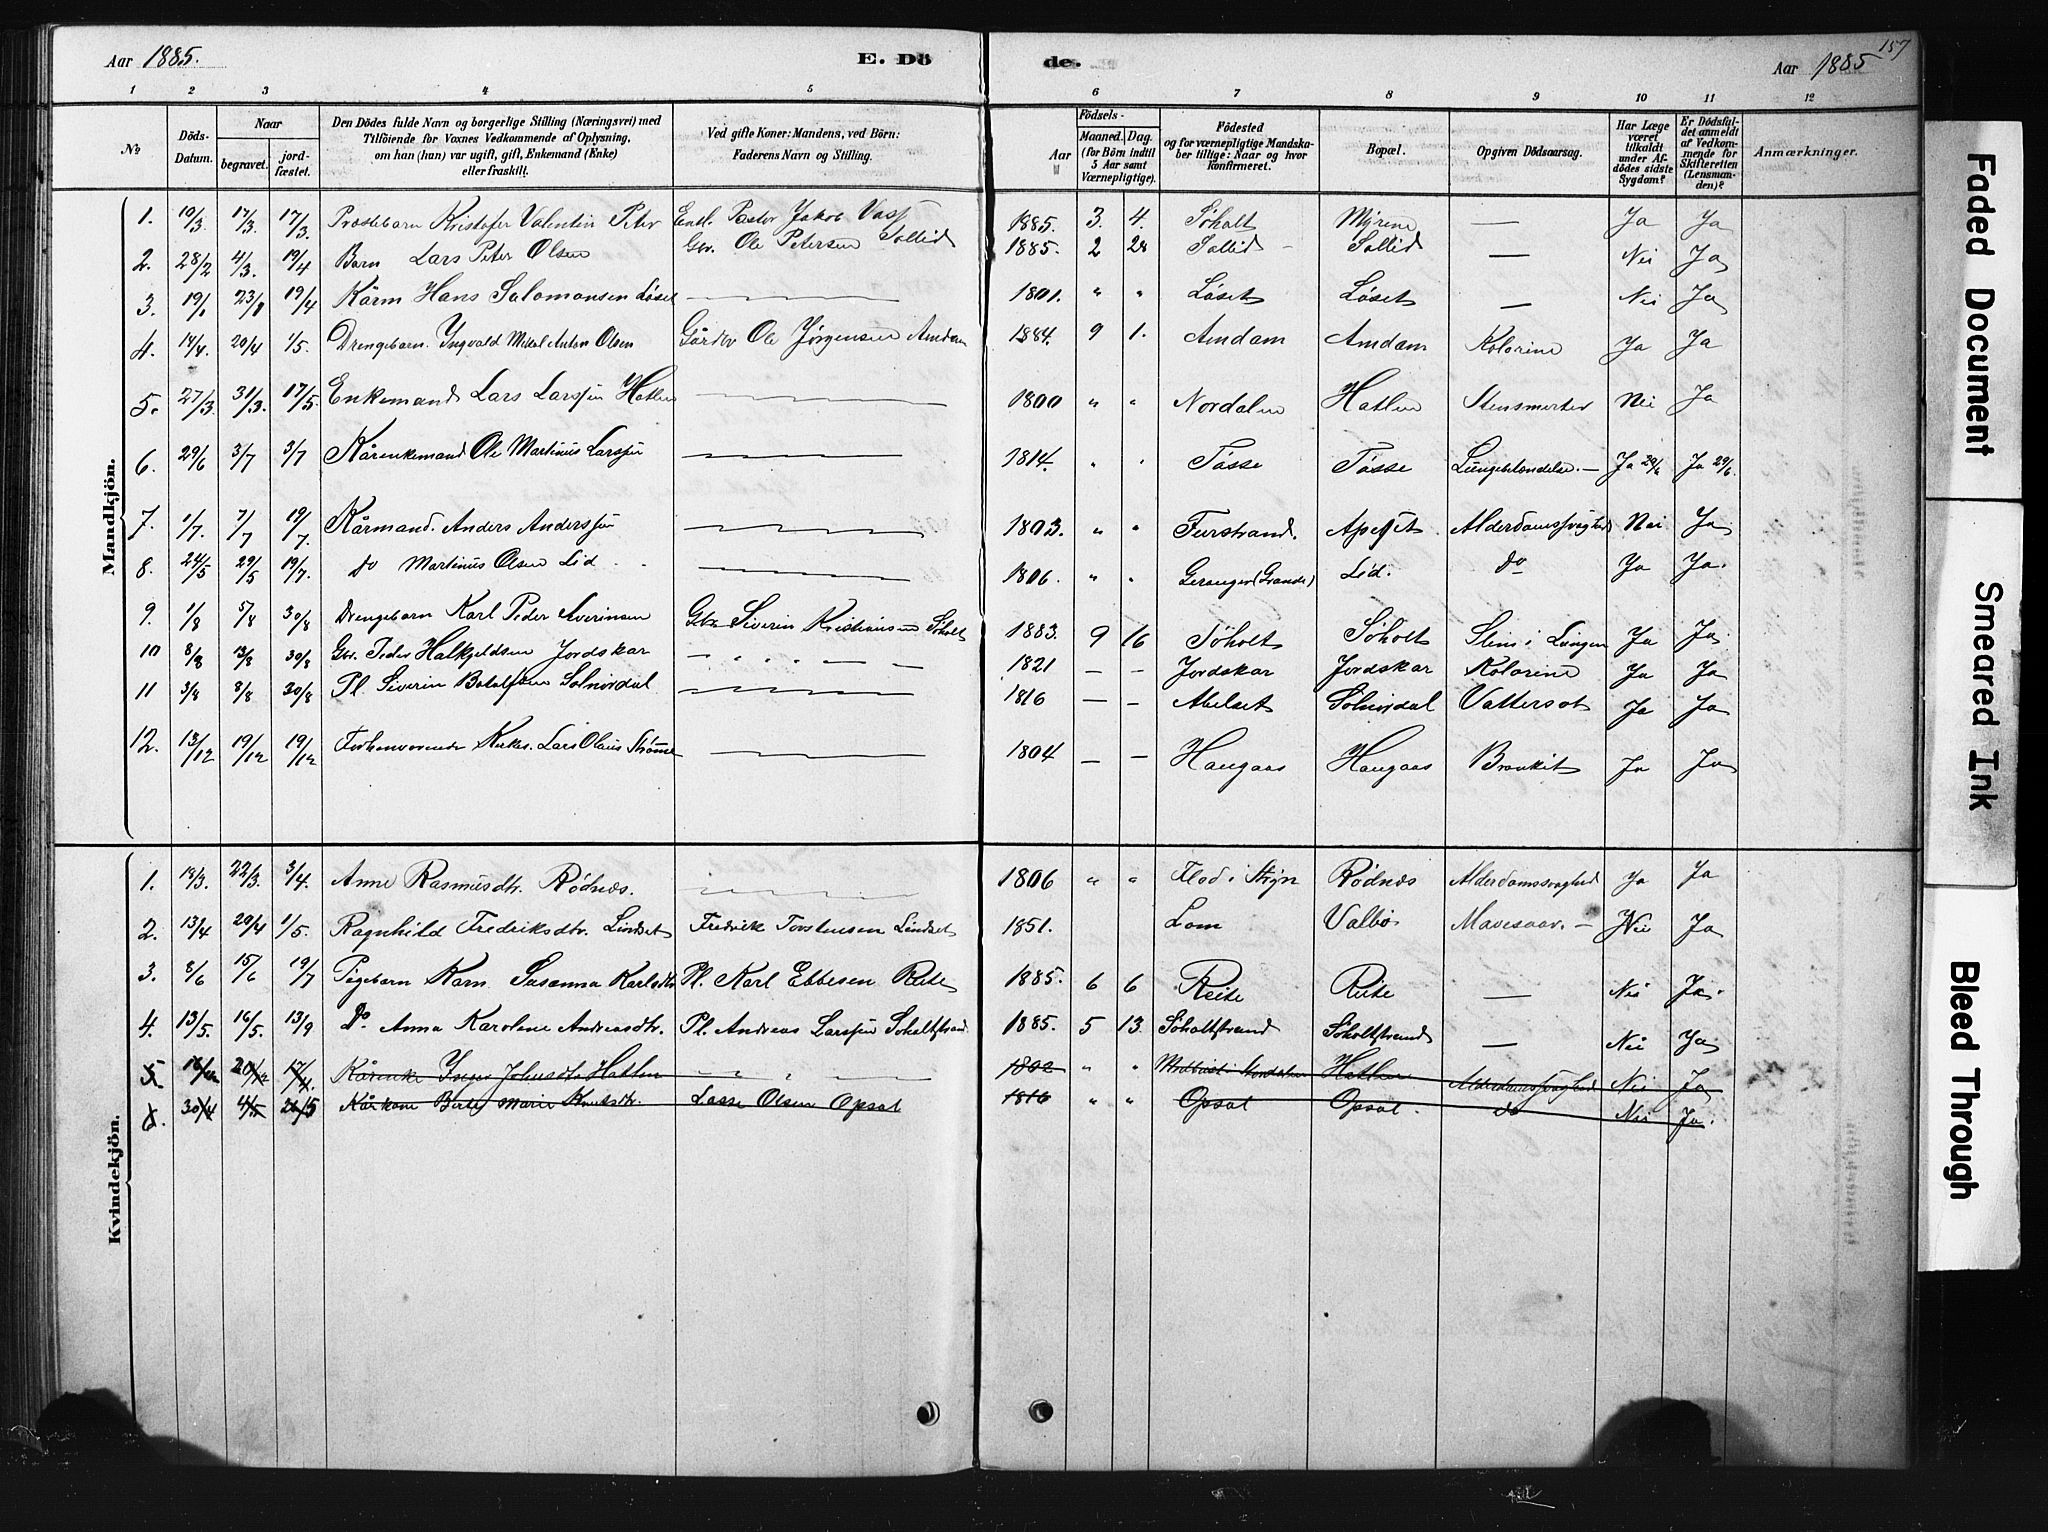 Aar 1885. E. Dö de. Aar 1885 157
1 2 3 4 5 6 7 8 9 10 11 12
№ Döds-Datum. Naar begravet. jord-fæstet. Den Dödes fulde Navn og borgerlige Stilling (Næringsvei) med Tilföiende for Voxnes Vedkommende af Oplysning, om han (hun) var ugift, gift, Enkemand (Enke) eller fraskilt. Ved gifte Koner: Mandens, ved Börn: Faderens Navn og Stilling. Födsels- Aar Maaned. Dag. (for Börn indtil 5 Aar samt Værnepligtige). Födested og for værnepligtige Mandska-ber tillige: Naar og hvor konfirmeret. Bopæl. Opgiven Dödsaarsag. Har Læge været tilkaldt under Af-dödes sidste Sygdom? Er Dödsfal-det anmeldt af Vedkom-mende for Skifteretten (Lensman-den)? Anmærkninger.
Mandkjön.
1. 10/3 17/3. 17/3. Præstebarn Kristofer Valentin Peter Pastor Jakob 1885. 3. 4. Søholt Myrene — Ja Ja
2. 28/2 4/3. 19/4 Barn Lars Peter Olsen Gbr. Ole Petersen Sollid 1885. 2 28 Sollid Sollid — Nei Ja
3. 19/1 23/1 19/4 Kårm Hans Salomonsen Løset — 1801. " " Løset Løset — Nei Ja
4. 14/4. 20/4 1/5. Drengebarn. Ingvald Mikal Anton Olsen Gårdbr Ole Jørgensen Amdam 1884. 9 1. Amdam Amdam Kolorine Ja Ja
5. 27/3 31/3. 17/5. Enkemand Lars Larssen Hatlen — 1800 " " Nordalen Hatlen Stensmerter Nei Ja
6. 29/6 3/7 3/7 Kårenkemand Ole Martinus Larssen — 1814. " " Tøsse Tøsse Lungebetændelse. — Ja 29/6 Ja 29/6.
7. 1/7. 7/7 19/7. Kårmand. Anders Anderssen — 1803. " " Furstrand. Apeset Alderdomssvaghed Nei Ja
8. 24/5 29/5 19/7. Do Martinus Olsen Lid — 1806. " " Geranger (Grande) Lid. Do Ja Ja.
9. 1/8 5/8 30/8 Drengebarn Karl Peder Severinsen Gbr Siverin Kristiansen Søholt 1883. 9 16 Søholt Søholt Slim i Lungen Ja Ja
10 8/8 13/8 30/8 Gbr. Peder Halkjeldsen Jordskar — 1821 — — Jordskar Jordskar Kolorine Ja Ja
11 3/8 8/8 30/8 Pl. Siverin Solnørdal — 1816 — — Abelset Solnørdal Vattersot Ja Ja
12. 13/12 19/12 19/12 Forhenværende Kirkes. Lars Olaus Strømme — 1804 — — Haugaas Haugaas Bronkit Ja Ja
Kvindekjön.
1. 18/3. 22/3. 3/4. Anne Rasmusdtr. Rødnæs. — 1806 " " Flod i Stryn Rødnæs Alderdomssvaghed Ja Ja
2. 13/4 20/4 1/5. Ragnhild Fredriksdtr. Lindset Fredrik Torstensen Lindset 1851. Lom Valbø Mavesaar. — Nei Ja
3. 8/6 15/6 19/7 Pigebarn Karn Susanna Karlsdtr Pl. Karl Ebbesen Reite 1885. 6 6 Reite Reite — Nei Ja.
4. 13/5. 16/5. 13/9 Do. Anna Karoline Andreasdtr. Pl. Andreas Larssen Søholtstrand 1885. 5 13. Søholtstrand Søholtstrand — Nei Ja
5 16/12 20/12 Kårenke Inger Johnsdtr Hatlen — 1802 " " Nordalen Hatlen Alderdomssvaghed Nei Ja
6. 30/4 Kårkone Berte Marie Knutsdtr. Lasse Olsen Opsal 1816 " " Opsal Opsal. do Nei Ja.
Faded Document
Smeared Ink
Bleed Through